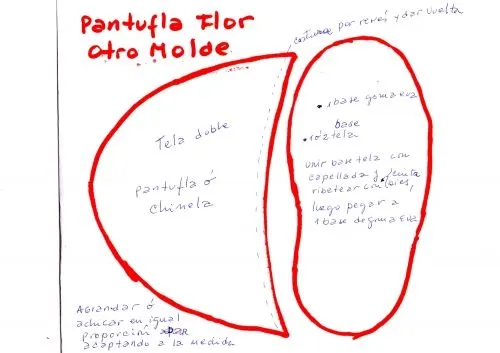 Pantufla Flor
Otro Molde
costurar por revés y dar vuelta
Tela doble
pantufla ó
chinela
1 base goma eva
base
1 ó 2 tela
Unir base tela con
capellada y
ribetear con bies,
luego pegar a
1 base de goma eva
Agrandar ó
achicar en igual
proporción
adaptando a la medida